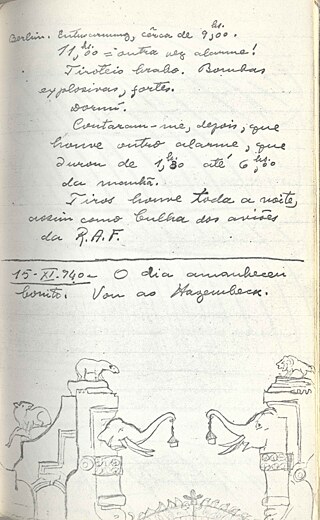 Berlin. Entwarnung, cêrca de 9,hs.00.
11,hs.00 = outra vez alarme!
Tiroteio brabo. Bombas
explosivas, fortes.
Dormí.
Contaram-me, depois, que
houve outro alarme, que
durou de 1,hs.30 até 6,hs.00
da manhã.
Tiros houve toda a noite,
assim como bulha dos aviões
da R.A.F.
15-XI-940 - O dia amanheceu
bonito. Vou ao Hagembeck.